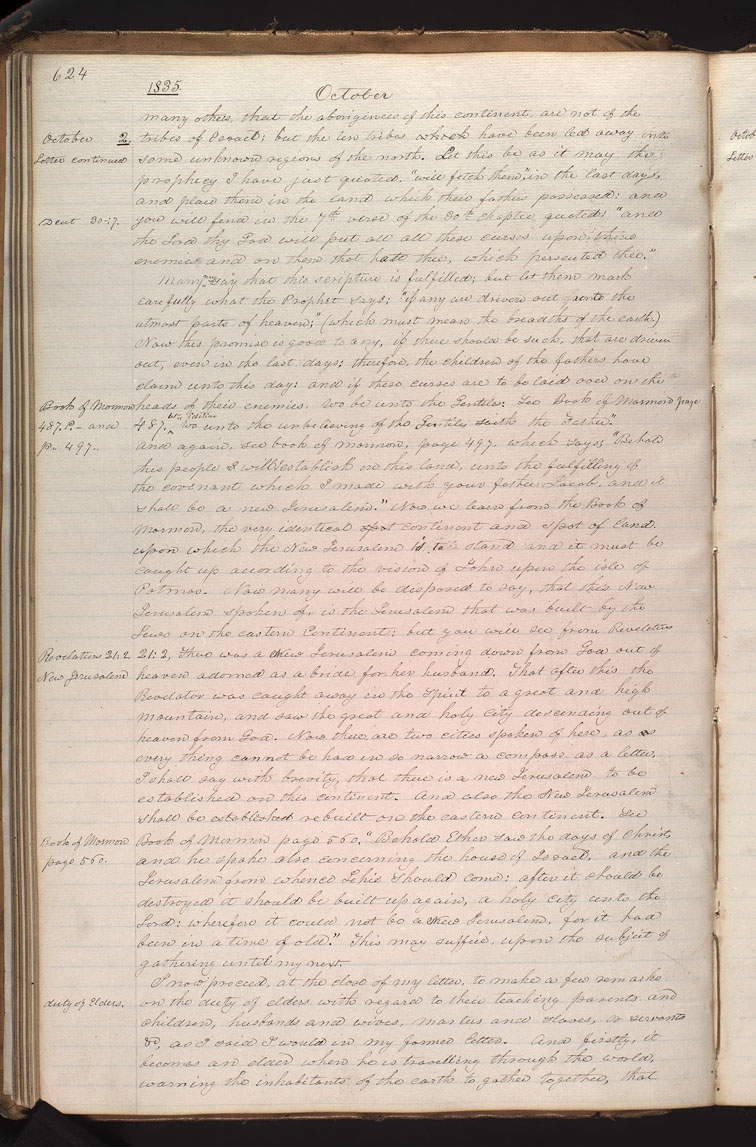 624
1835.
October
many others, that the aboriginees of this continent, are not of the
October 2. tribes of Israel; but the ten tribes which have been led away into
Letter continued some unknown regions of the north. Let this be as it may, the
prophecy I have just quoted, "will fetch them," in the last days,
and place them in the land which their fathers possessed: and
Deut 30:7. you will find in the 7th verse of the 30th chapter quoted: "and
the Lord thy God will put all all these curses upon thine
enemies and on them that hate thee, which persecuted thee."
Many may say that this scripture is fulfilled; but let them mark
carefully what the Prophet says; "if any are driven out unto the
utmost parts of heaven;" (which must mean the breadths of the earth.)
Now this promise is good to any, if there should be such, that are driven
out, even in the last days: therefore, the children of the fathers have
claim unto this day: and if these curses are to be laid over on the
Book of Mormon heads of their enemies, wo be unto the Gentiles: See Book of Mormon page
487. P. and 487. Wo unto the unbelieving of the Gentiles saith the Father."
p. 497. And again, see book of mormon, page 497. which says; "Behold
this people I will establish in this land, unto the fulfilling of
the covenant which I made with your father Jacob, and it
shall be a new Jerusalem." Now we learn from the Book of
Mormon, the very identical spot continent and spot of land
upon which the New Jerusalem is to stand and it must be
caught up according to the vision of John upon the isle of
Patmos. Now many will be disposed to say, that this New
Jerusalem spoken of, is the Jerusalem that was built by the
Jews on the eastern Continent; but you will see from Revelation
Revelation 21:2 21:2, there was a New Jerusalem coming down from God out of
New Jerusalem heaven adorned as a bride for her husband. That after this the
Revelator was caught away in the Spirit to a great and high
mountain, and saw the great and holy City descending out of
heaven from God. Now there are two cities spoken of here, as
every thing cannot be had in so narrow a compass as a letter,
I shall say with brevity, that there is a new Jerusalem to be
established on this continent. And also the New Jerusalem
shall be established rebuilt on the eastern continent. See
Book of Mormon Book of Mormon page 560. "Behold Ether saw the days of Christ
page 560. and he spake also concerning the house of Israel, and the
Jerusalem from whence Lehi should come: after it should be
destroyed it should be built up again, a holy City unto the
Lord: wherefore it could not be a New Jerusalem, for it had
been in a time of old." This may suffice, upon the subject of
gathering until my next.
I now proceed, at the close of my letter, to make a few remarks
duty of Elders. on the duty of elders with regard to their teaching parents and
children, husbands and wives, masters and slaves, or servants
&c, as I said I would in my former letter. And firstly, it
becomes an elder when he is travelling through the world,
warning the inhabitants of the earth to gather together, that
Octob
Letter